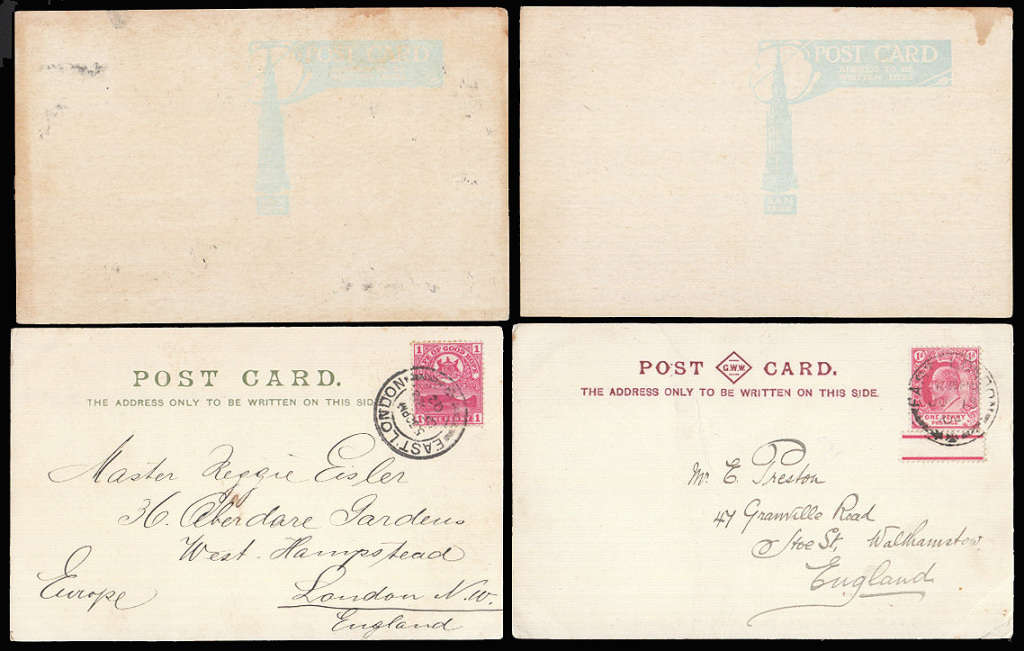 POST CARD
ADDRESS TO BE
WRITTEN HERE
POST CARD.
THE ADDRESS ONLY TO BE WRITTEN ON THIS SIDE.
1 1
OF GOOD
1 1
EAST LONDON
Master Reggie Eisler
36 Aberdare Gardens
West Hampstead
London N.W.
England
Europe
POST G.W.W. CARD.
THE ADDRESS ONLY TO BE WRITTEN ON THIS SIDE.
ONE PENNY
EAST LONDON
Mr. E. Preston
47 Granville Road
Hoe St, Walthamstow
England